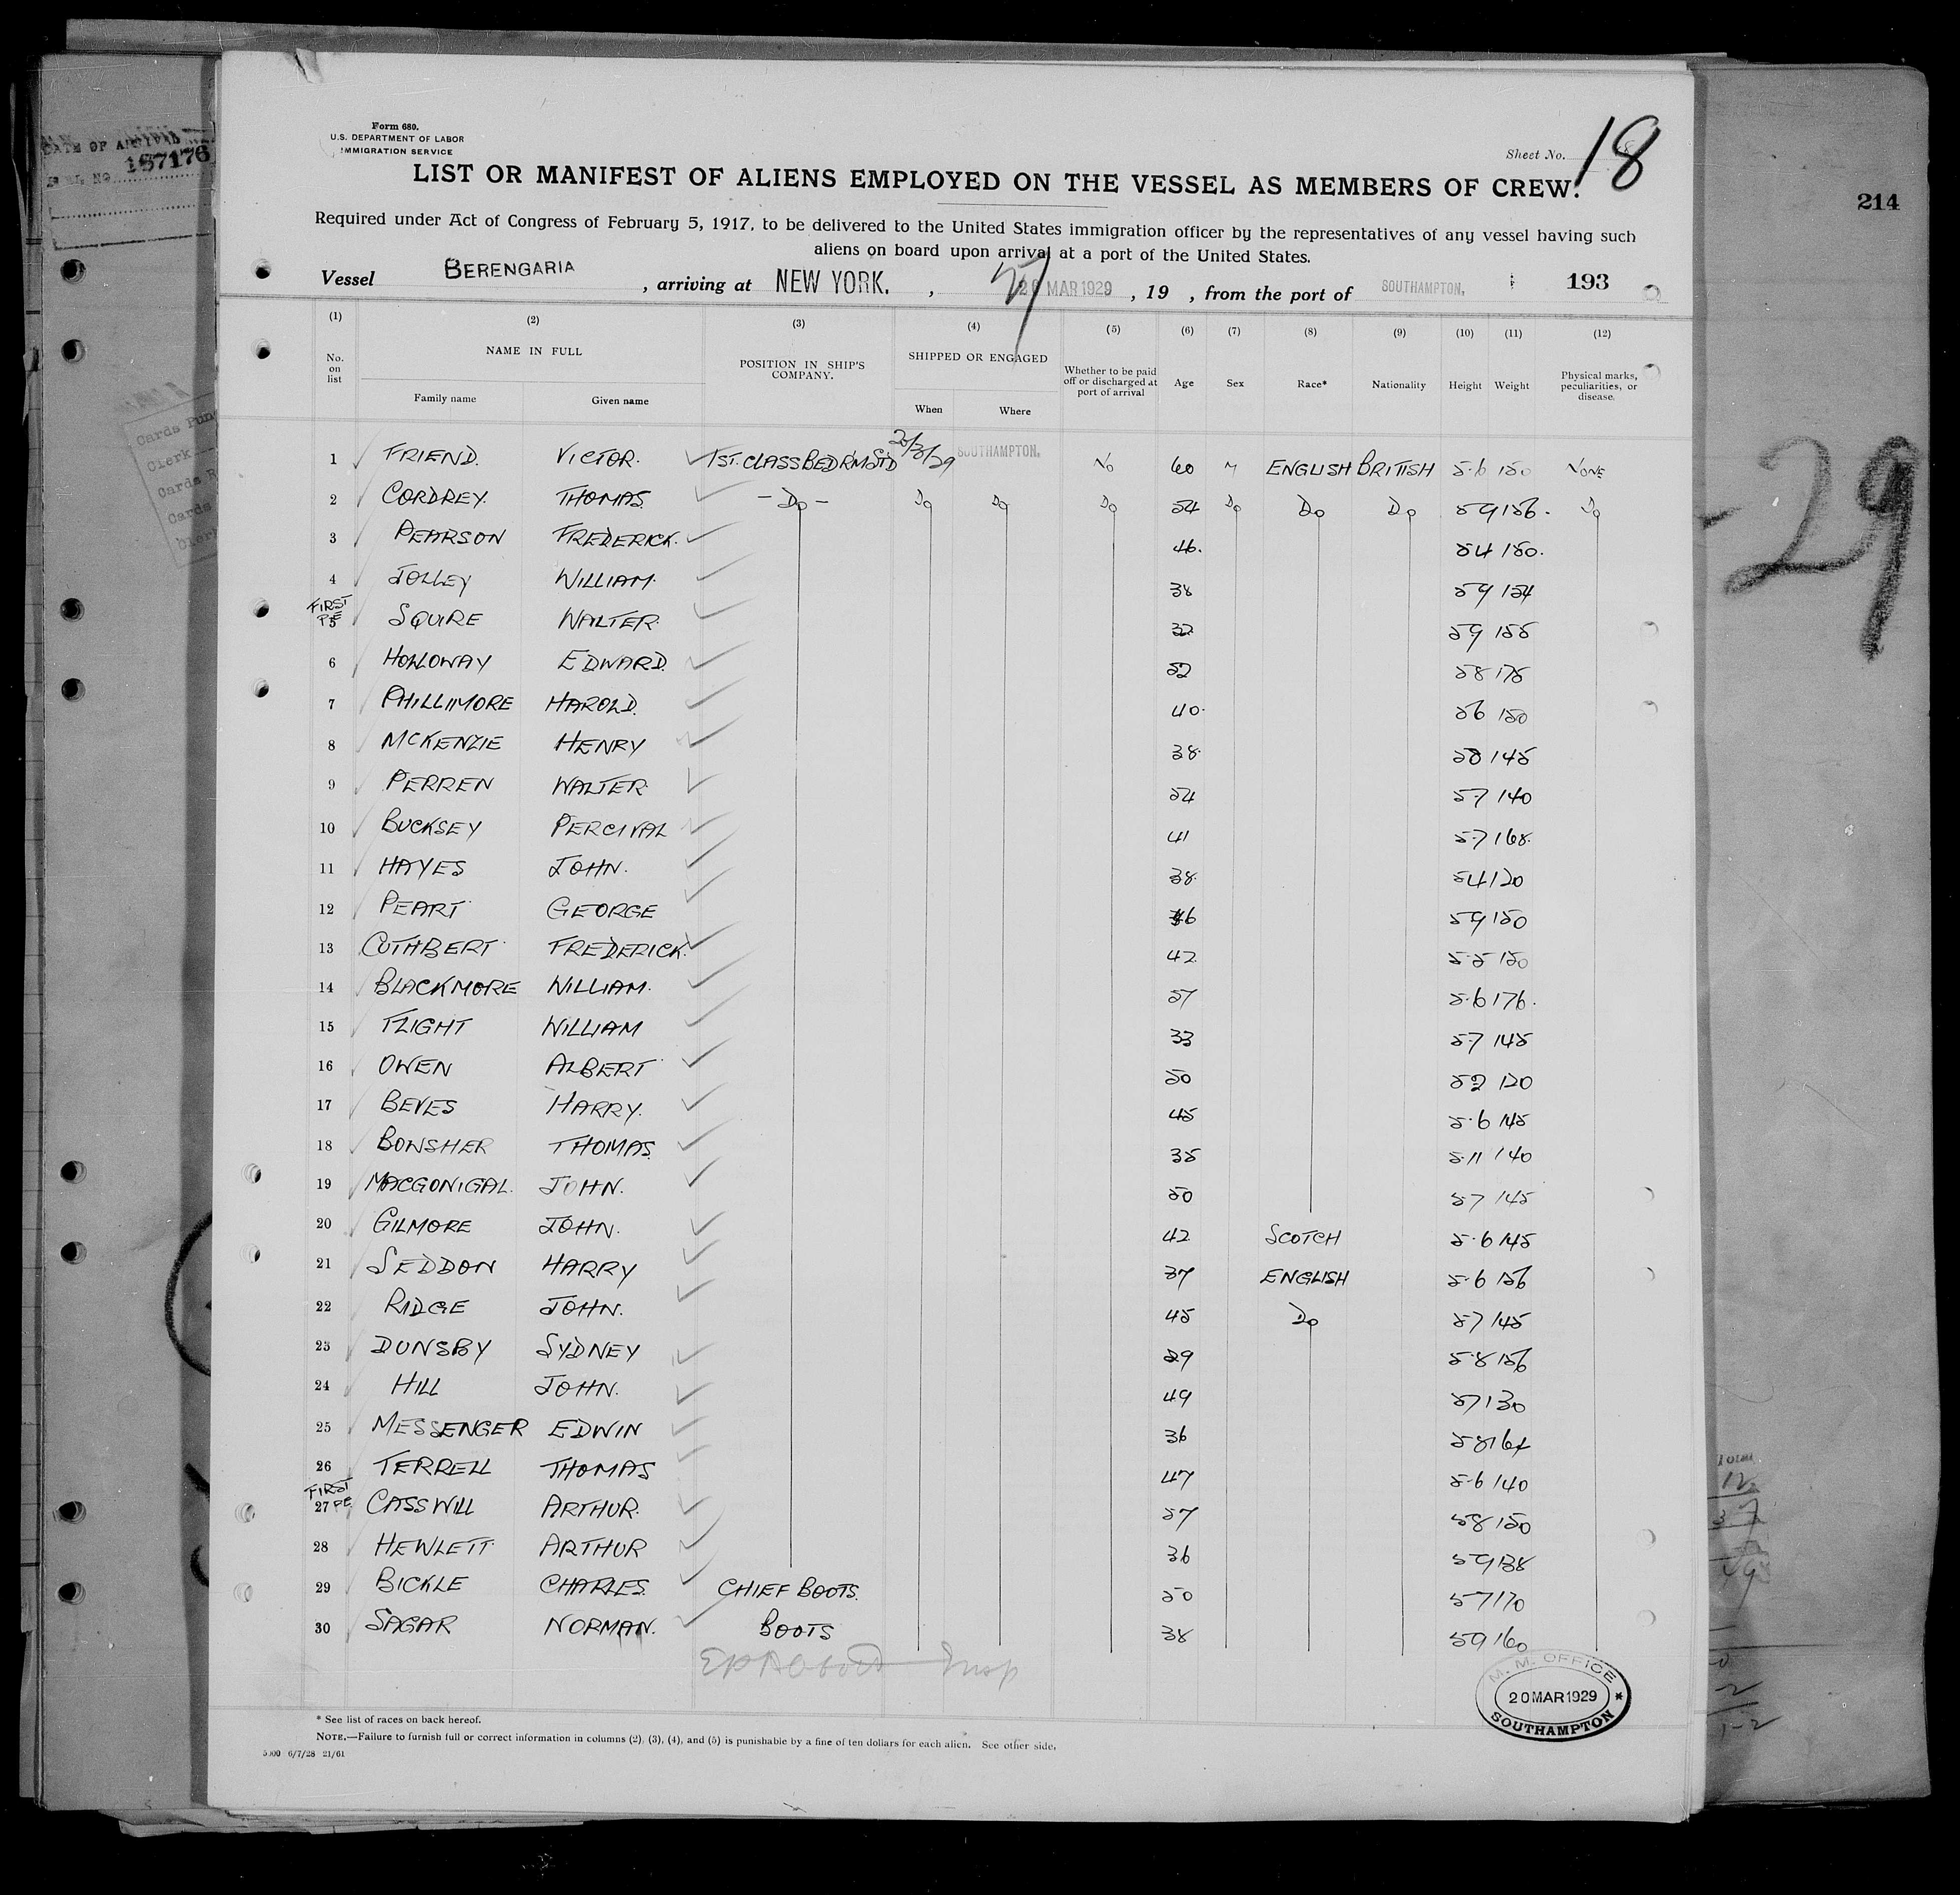 Form 680.
U.S. DEPARTMENT OF LABOR
IMMIGRATION SERVICE
Sheet No. 18
LIST OR MANIFEST OF ALIENS EMPLOYED ON THE VESSEL AS MEMBERS OF CREW.
Required under Act of Congress of February 5, 1917, to be delivered to the United States immigration officer by the representatives of any vessel having such
aliens on board upon arrival at a port of the United States.
Vessel BERENGARIA, arriving at NEW YORK., 27 MAR 1929, 19 , from the port of SOUTHAMPTON, 193
(1) (2) (3) (4) (5) (6) (7) (8) (9) (10) (11) (12)
No. on list NAME IN FULL Family name Given name POSITION IN SHIP'S COMPANY. SHIPPED OR ENGAGED When Where Whether to be paid off or discharged at port of arrival Age Sex Race* Nationality Height Weight Physical marks, peculiarities, or disease.
1 FRIEND. VICTOR. 1ST. CLASS BEDRM STD 20/3/29 SOUTHAMPTON. No 60 M ENGLISH BRITISH 5.6 150 NONE
2 CORDREY. THOMAS. - Do - Do Do Do 54 Do Do Do 59 156. Do
3 PEARSON FREDERICK. 46. 54 150.
4 JOLLEY WILLIAM. 38 59 154
FIRST PE 5 SQUIRE WALTER. 32 59 155
6 HOLLOWAY EDWARD. 52 58 175
7 PHILLIMORE HAROLD. 40. 56 150
8 MCKENZIE HENRY 38. 58 145
9 PERREN WALTER 54 57 140
10 BUCKSEY PERCIVAL 41 5.7 168.
11 HAYES JOHN. 38. 54 120
12 PEART GEORGE 46 59 150
13 CUTHBERT FREDERICK. 42 5.5 150
14 BLACKMORE WILLIAM. 57 5.6 176.
15 FLIGHT WILLIAM 33 57 145
16 OWEN ALBERT 50 52 120
17 BEVES HARRY. 45 5.6 145
18 BOWSHER THOMAS. 35 5.11 140
19 MACGONIGAL. JOHN. 50 57 145
20 GILMORE JOHN. 42 SCOTCH 5.6 145
21 SEDDON HARRY 37 ENGLISH 5.6 156
22 RIDGE JOHN. 45 Do 57 145
23 DUNSBY SYDNEY 29 5.8 156
24 HILL JOHN. 49 57 130
25 MESSENGER EDWIN 36 58 164
26 TERRELL THOMAS 47 5.6 140
FIRST PE 27 CASSWILL ARTHUR. 57 58 150
28 HEWLETT ARTHUR 36 59 138
29 BICKLE CHARLES. CHIEF BOOTS. 50 57 170
30 SAGAR NORMAN. BOOTS 38 59 160
Insp
M. M. OFFICE
20 MAR 1929
SOUTHAMPTON
* See list of races on back hereof.
NOTE.—Failure to furnish full or correct information in columns (2), (3), (4), and (5) is punishable by a fine of ten dollars for each alien. See other side.
5000 6/7/28 21/61
DATE OF ARRIVAL
157176
Clerk
214
29